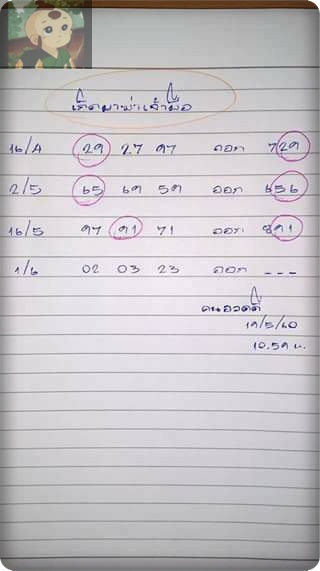 เด็ดมาฆ่าเจ้ามือ
16/4 29 27 97 ออก 729
2/5 65 69 59 ออก 656
16/5 97 91 71 ออก 891
1/6 02 03 23 ออก _ _ _
คนอวดดี
19/5/60
10.59 น.